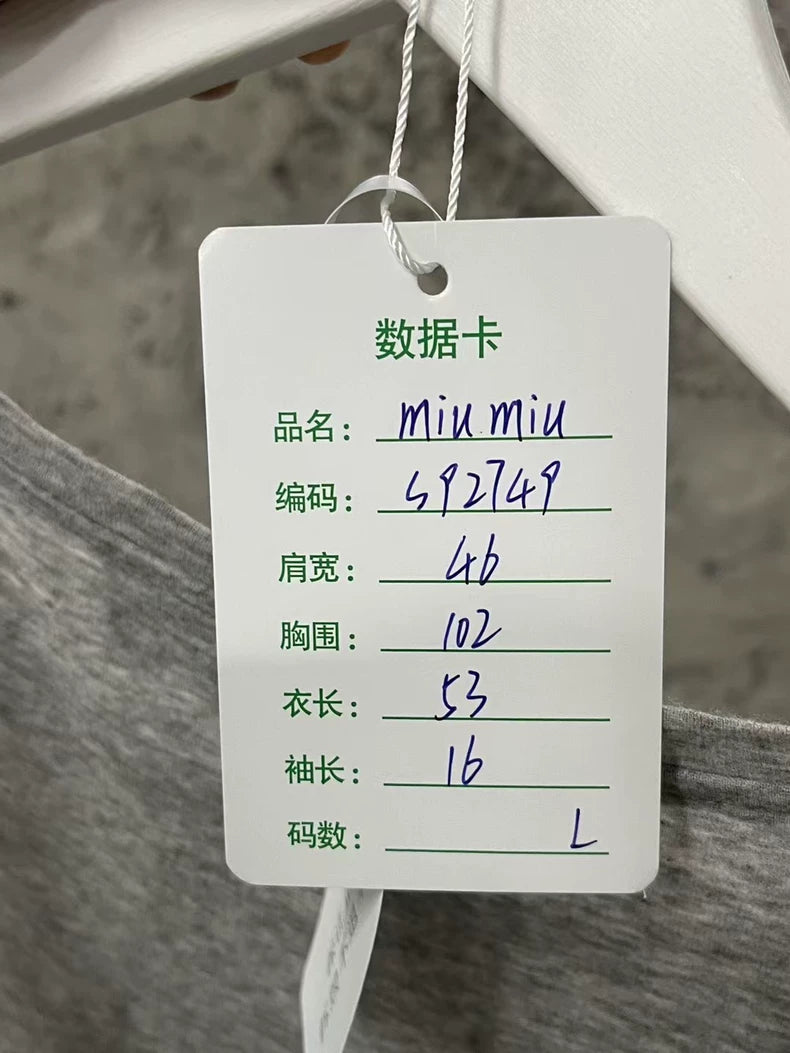 数据卡
品名: miu.miu
编码: 592749
肩宽: 46
胸围: 102
衣长: 53
袖长: 16
码数: L